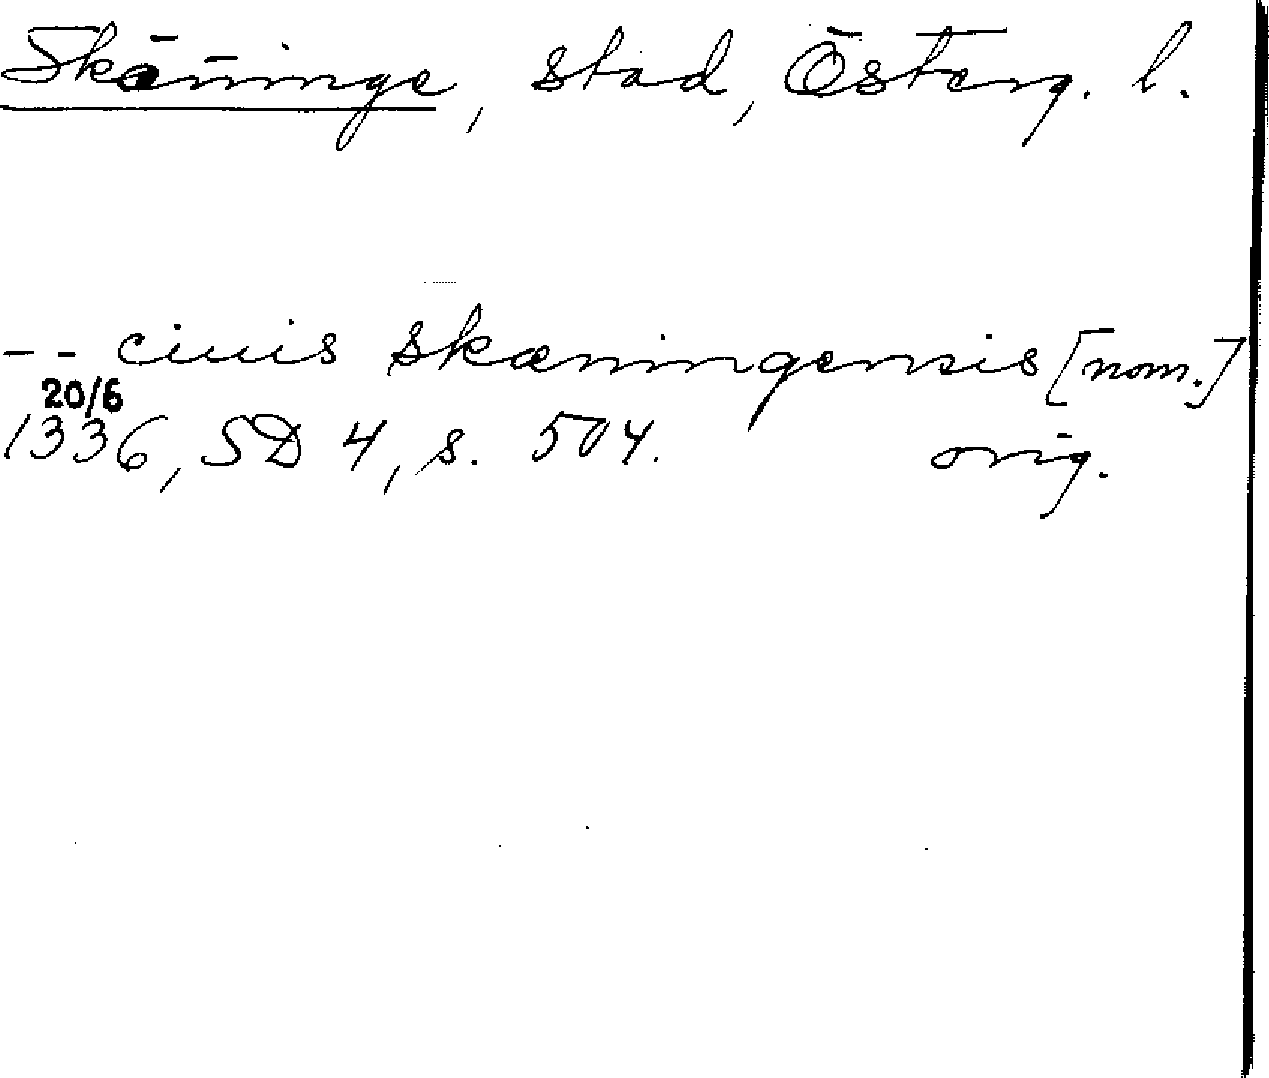 Skäninge, stad, Österg. l.
-- ciuis skæningensis [nom.]
20/6
1336, SD 4, s. 504. orig.